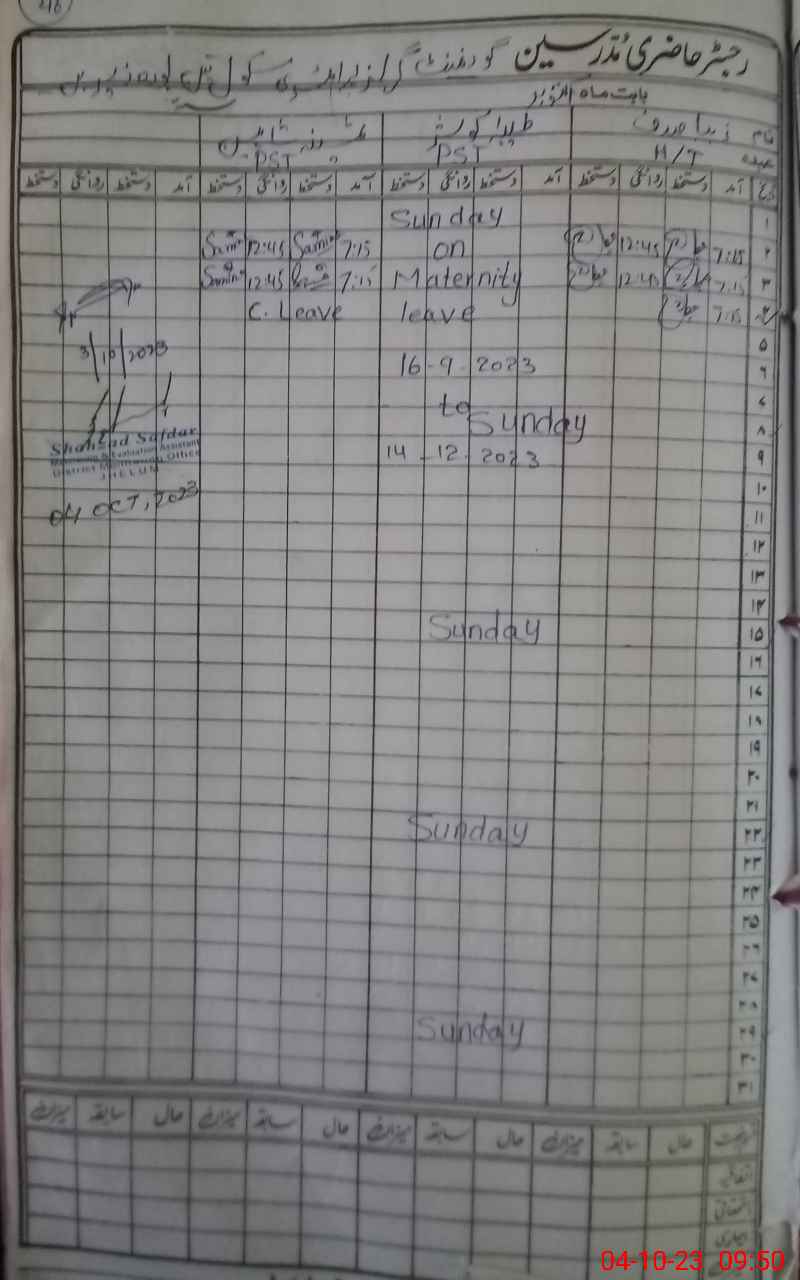 رجسٹر حاضری مُدرسین گورنمنٹ گرلز پرائمری سکول
بابت ماہ اکتوبر
نام
عہدہ H/T PST PST
تاریخ آمد دستخط روانگی دستخط آمد دستخط روانگی دستخط آمد دستخط روانگی دستخط آمد دستخط روانگی دستخط
۱ Sunday
۲ 7:15 12:45 on 7:15 12:45
۳ 7:15 12:45 Maternity 7:15 12:45
۴ 7:15 leave C. Leave
3/10/2023
۵
۶ 16-9-2023
۷ to
۸ Sunday
Shahzad Safdar
Monitoring & Evaluation Assistant
District Monitoring Office
JHELUM
۹ 14-12-2023
04 OCT, 2023
۱۰
۱۱
۱۲
۱۳
۱۴
۱۵ Sunday
۱۶
۱۷
۱۸
۱۹
۲۰
۲۱
۲۲ Sunday
۲۳
۲۴
۲۵
۲۶
۲۷
۲۸
۲۹ Sunday
۳۰
۳۱
رخصت حال سابقہ میزان حال سابقہ میزان حال سابقہ میزان حال سابقہ میزان
اتفاقیہ
استحقاقی
بیماری
04-10-23 09:50